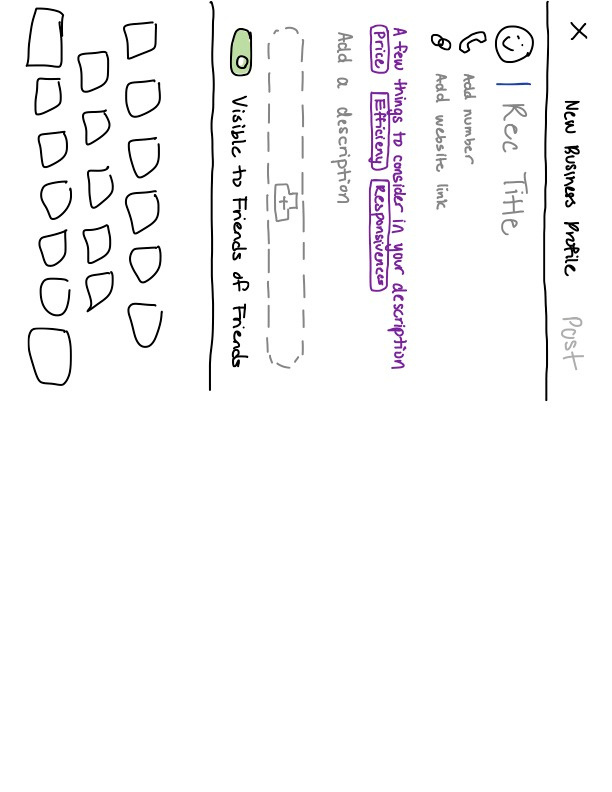 X New Business Profile Post
Rec Title
Add number
Add website link
A few things to consider in your description
Price Efficieny Responsiveness
Add a description
Visible to Friends of Friends